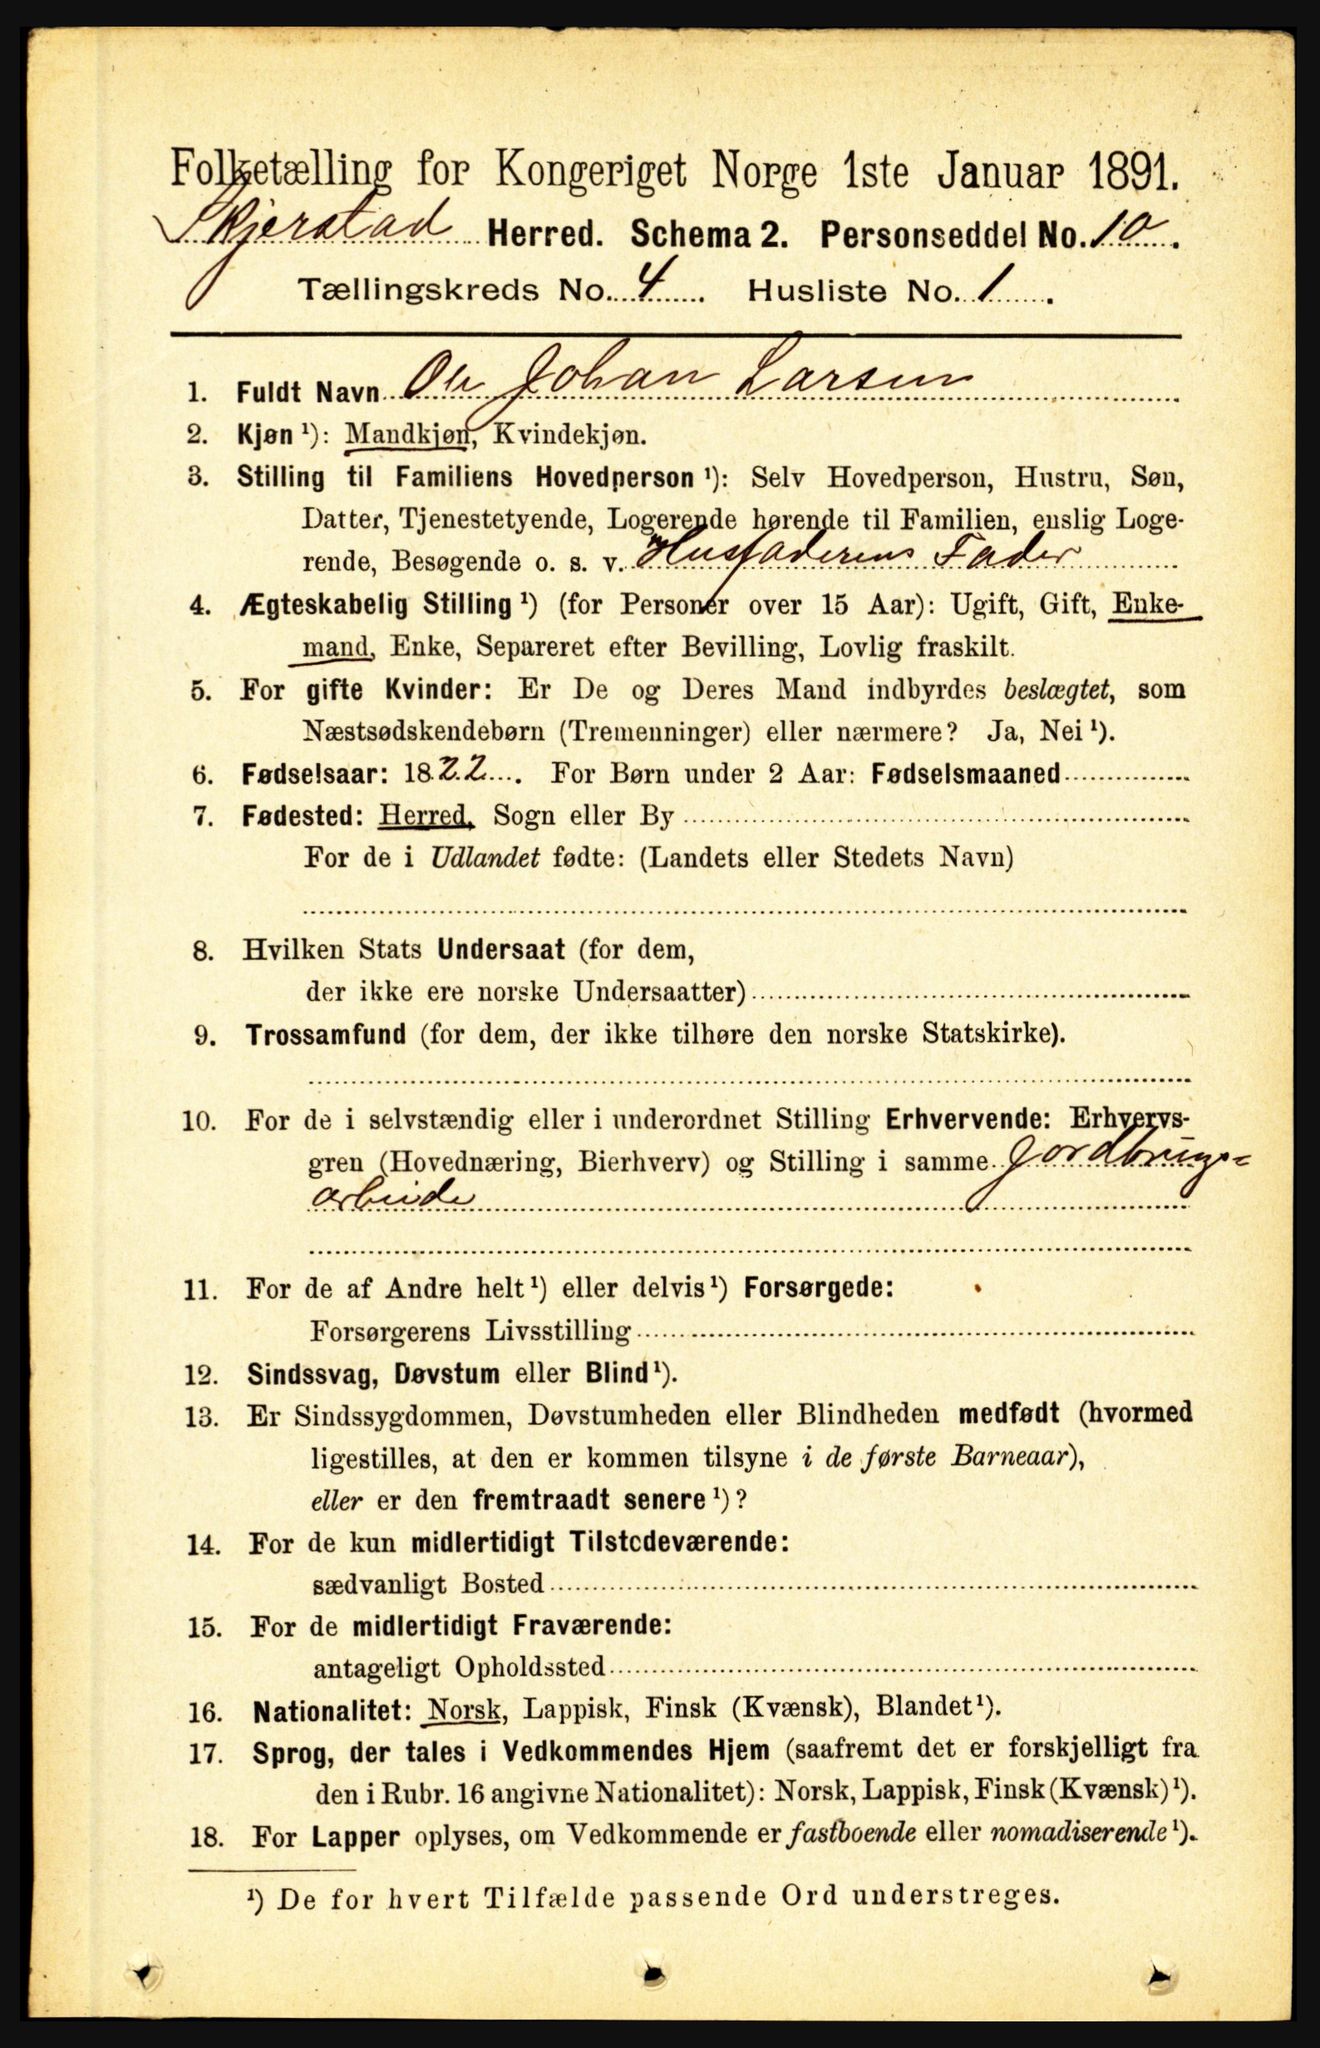 Folketælling for Kongeriget Norge 1ste Januar 1891.
Skjerstad Herred. Schema 2. Personseddel No. 10.
Tællingskreds No. 4. Husliste No. 1.
1. Fuldt Navn Ole Johan Larsen
2. Kjøn ¹): Mandkjøn, Kvindekjøn.
3. Stilling til Familiens Hovedperson ¹): Selv Hovedperson, Hustru, Søn,
Datter, Tjenestetyende, Logerende hørende til Familien, enslig Loge-
rende, Besøgende o. s. v. Husfaderens Fader
4. Ægteskabelig Stilling ¹) (for Personer over 15 Aar): Ugift, Gift, Enke-
mand, Enke, Separeret efter Bevilling, Lovlig fraskilt.
5. For gifte Kvinder: Er De og Deres Mand indbyrdes beslægtet, som
Næstsødskendebørn (Tremenninger) eller nærmere? Ja, Nei ¹).
6. Fødselsaar: 1822. For Børn under 2 Aar: Fødselsmaaned
7. Fødested: Herred, Sogn eller By
For de i Udlandet fødte: (Landets eller Stedets Navn)
8. Hvilken Stats Undersaat (for dem,
der ikke ere norske Undersaatter)
9. Trossamfund (for dem, der ikke tilhøre den norske Statskirke).
10. For de i selvstændig eller i underordnet Stilling Erhvervende: Erhvervs-
gren (Hovednæring, Bierhverv) og Stilling i samme Jordbrugs-
arbeide
11. For de af Andre helt ¹) eller delvis ¹) Forsørgede:
Forsørgerens Livsstilling
12. Sindssvag, Døvstum eller Blind ¹).
13. Er Sindssygdommen, Døvstumheden eller Blindheden medfødt (hvormed
ligestilles, at den er kommen tilsyne i de første Barneaar),
eller er den fremtraadt senere ¹)?
14. For de kun midlertidigt Tilstcdeværende:
sædvanligt Bosted
15. For de midlertidigt Fraværende:
antageligt Opholdssted
16. Nationalitet: Norsk, Lappisk, Finsk (Kvænsk), Blandet ¹).
17. Sprog, der tales i Vedkommendes Hjem (saafremt det er forskjelligt fra
den i Rubr. 16 angivne Nationalitet): Norsk, Lappisk, Finsk (Kvænsk) ¹).
18. For Lapper oplyses, om Vedkommende er fastboende eller nomadiserende ¹).
¹) De for hvert Tilfælde passende Ord understreges.